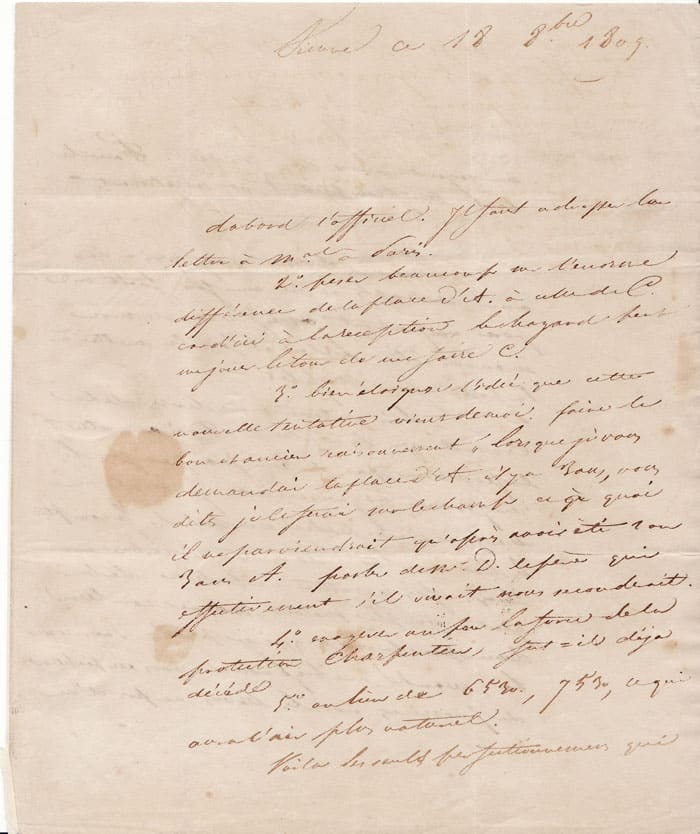 Vienne ce 18 8.bre 1809.
dabord l'officiel. Il faut adresser la
lettre à M.al à Paris.
2.o peser beaucoup sur l'enorme
différence de la place d'A. à celle de C.
car d'ici à la reception le hazard peut
me jouer le tour de me faire C.
3.o bien eloigner l'idée que cette
nouvelle tentative vient de moi. faire le
bon et ancien raisonnement, lorsque je vous
demandai la place d'A. il y a 3 ans, vous
dites je le ferai sur le champ ce à quoi
il ne parviendrait qu'après avoir été 2 ou
3 ans A. parler de M.r D. le père qui
effectivement s'il vivait nous seconderait.
4.o exagerer un peu la force de la
protection Charpentier, fut=il déja
décédé
5.o au lieu de 6530, 7530, ce qui
aura l'air plus naturel.
Voila les seuls perfectionnemens que